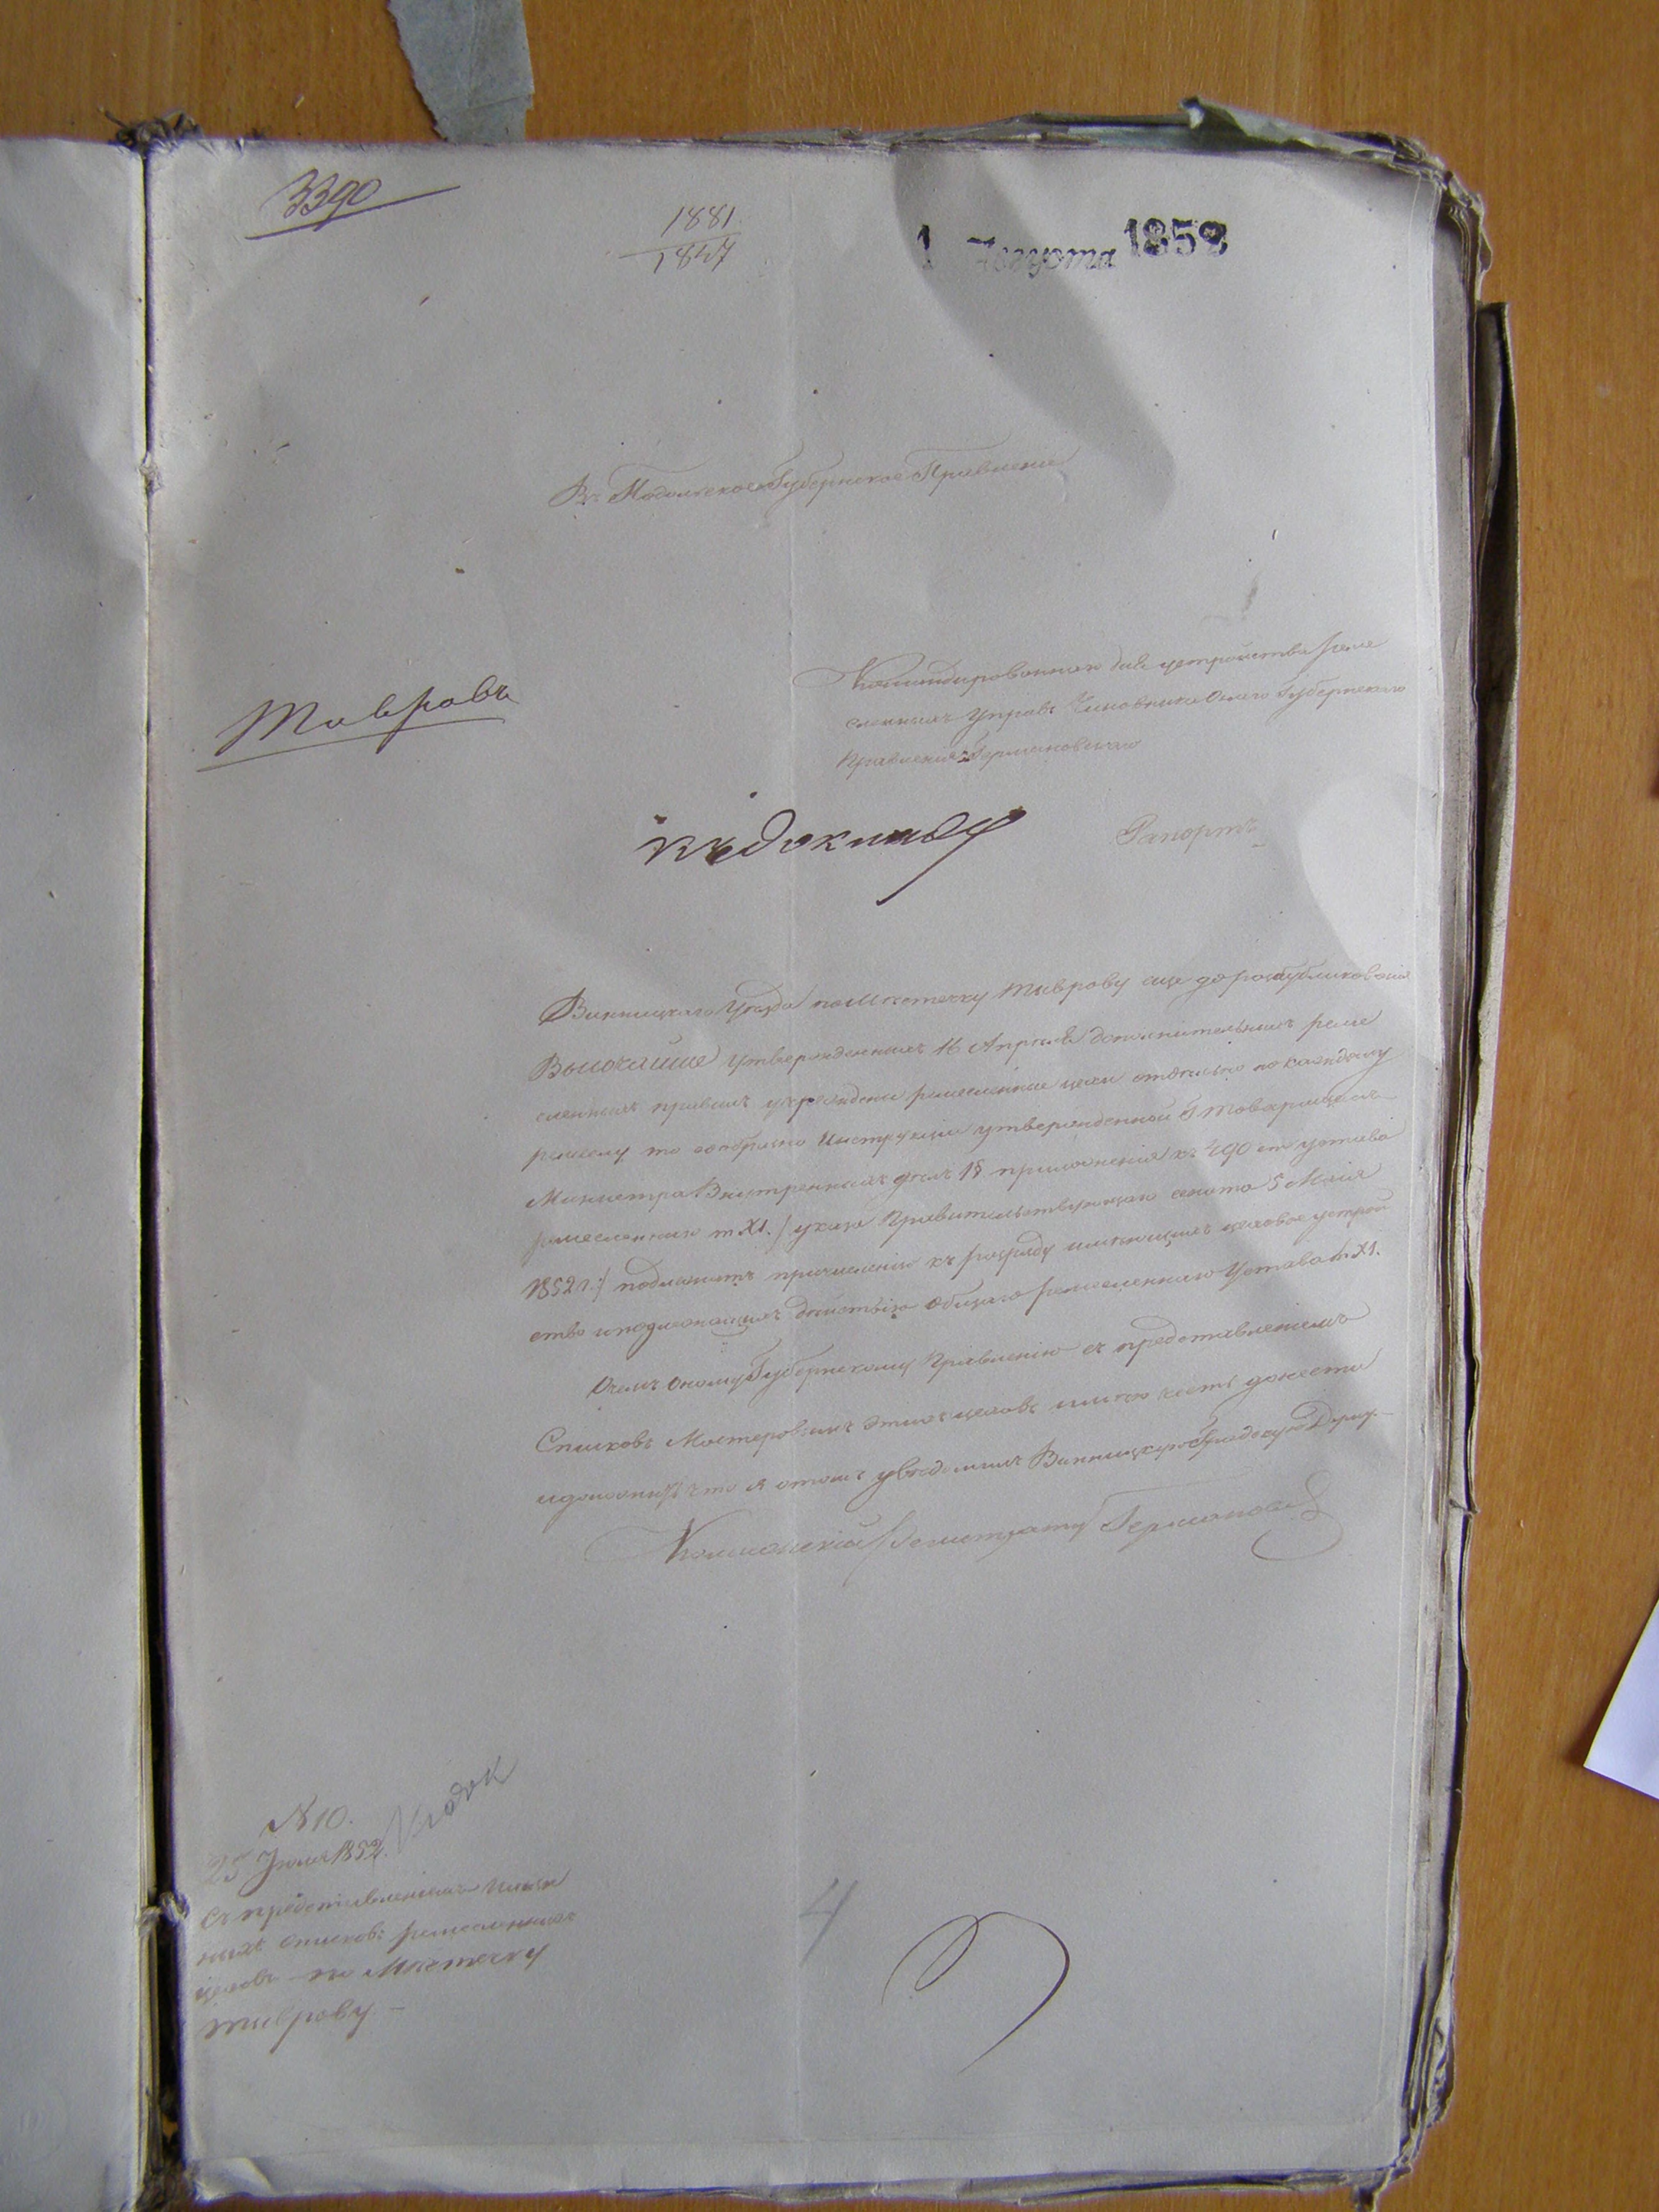 3390
1881
1847
1 Августа 1852
Въ Подольское Губернское Правление
Тывровъ
Командированнаго для устройства реме
сленныхъ Управъ Чиновника Онаго Губернскаго
Правления Германовскаго
къ докладу
Рапортъ
Винницкаго Уѣзда по Мѣстечку Тыврову еще до распубликованія
Высочайше утвержденныхъ 16 Апрѣля дополнительныхъ реме
сленныхъ правилъ учреждены ремесленные цехи отдѣльно по каждому
ремеслу то сообразно Инструкціи утвержденной Г Товарищемъ
Министра Внутреннихъ дѣлъ 18 приложенія къ 490 ст устава
ремесленнаго т XI. / указа Правительствующаго сената 5 Мая
1852 г:/ подлежатъ причисленію къ разряду имѣющихъ цеховое устрой
ство и подлежащихъ дѣйствію общаго ремесленнаго Устава т XI.
О чемъ оному Губернскому Правленію съ представленіемъ
Списковъ Мастеровымъ этихъ цеховъ имѣю честь донести
и доложить что я о томъ увѣдомилъ Винницкую Градскую Думу.
Коллежскій Регистраторъ Германовск
N 10.
25 Іюля 1852.
Съ представленіемъ
ныхъ списковъ ремесленныхъ
цеховъ по Мѣстечку
Тыврову. –
4